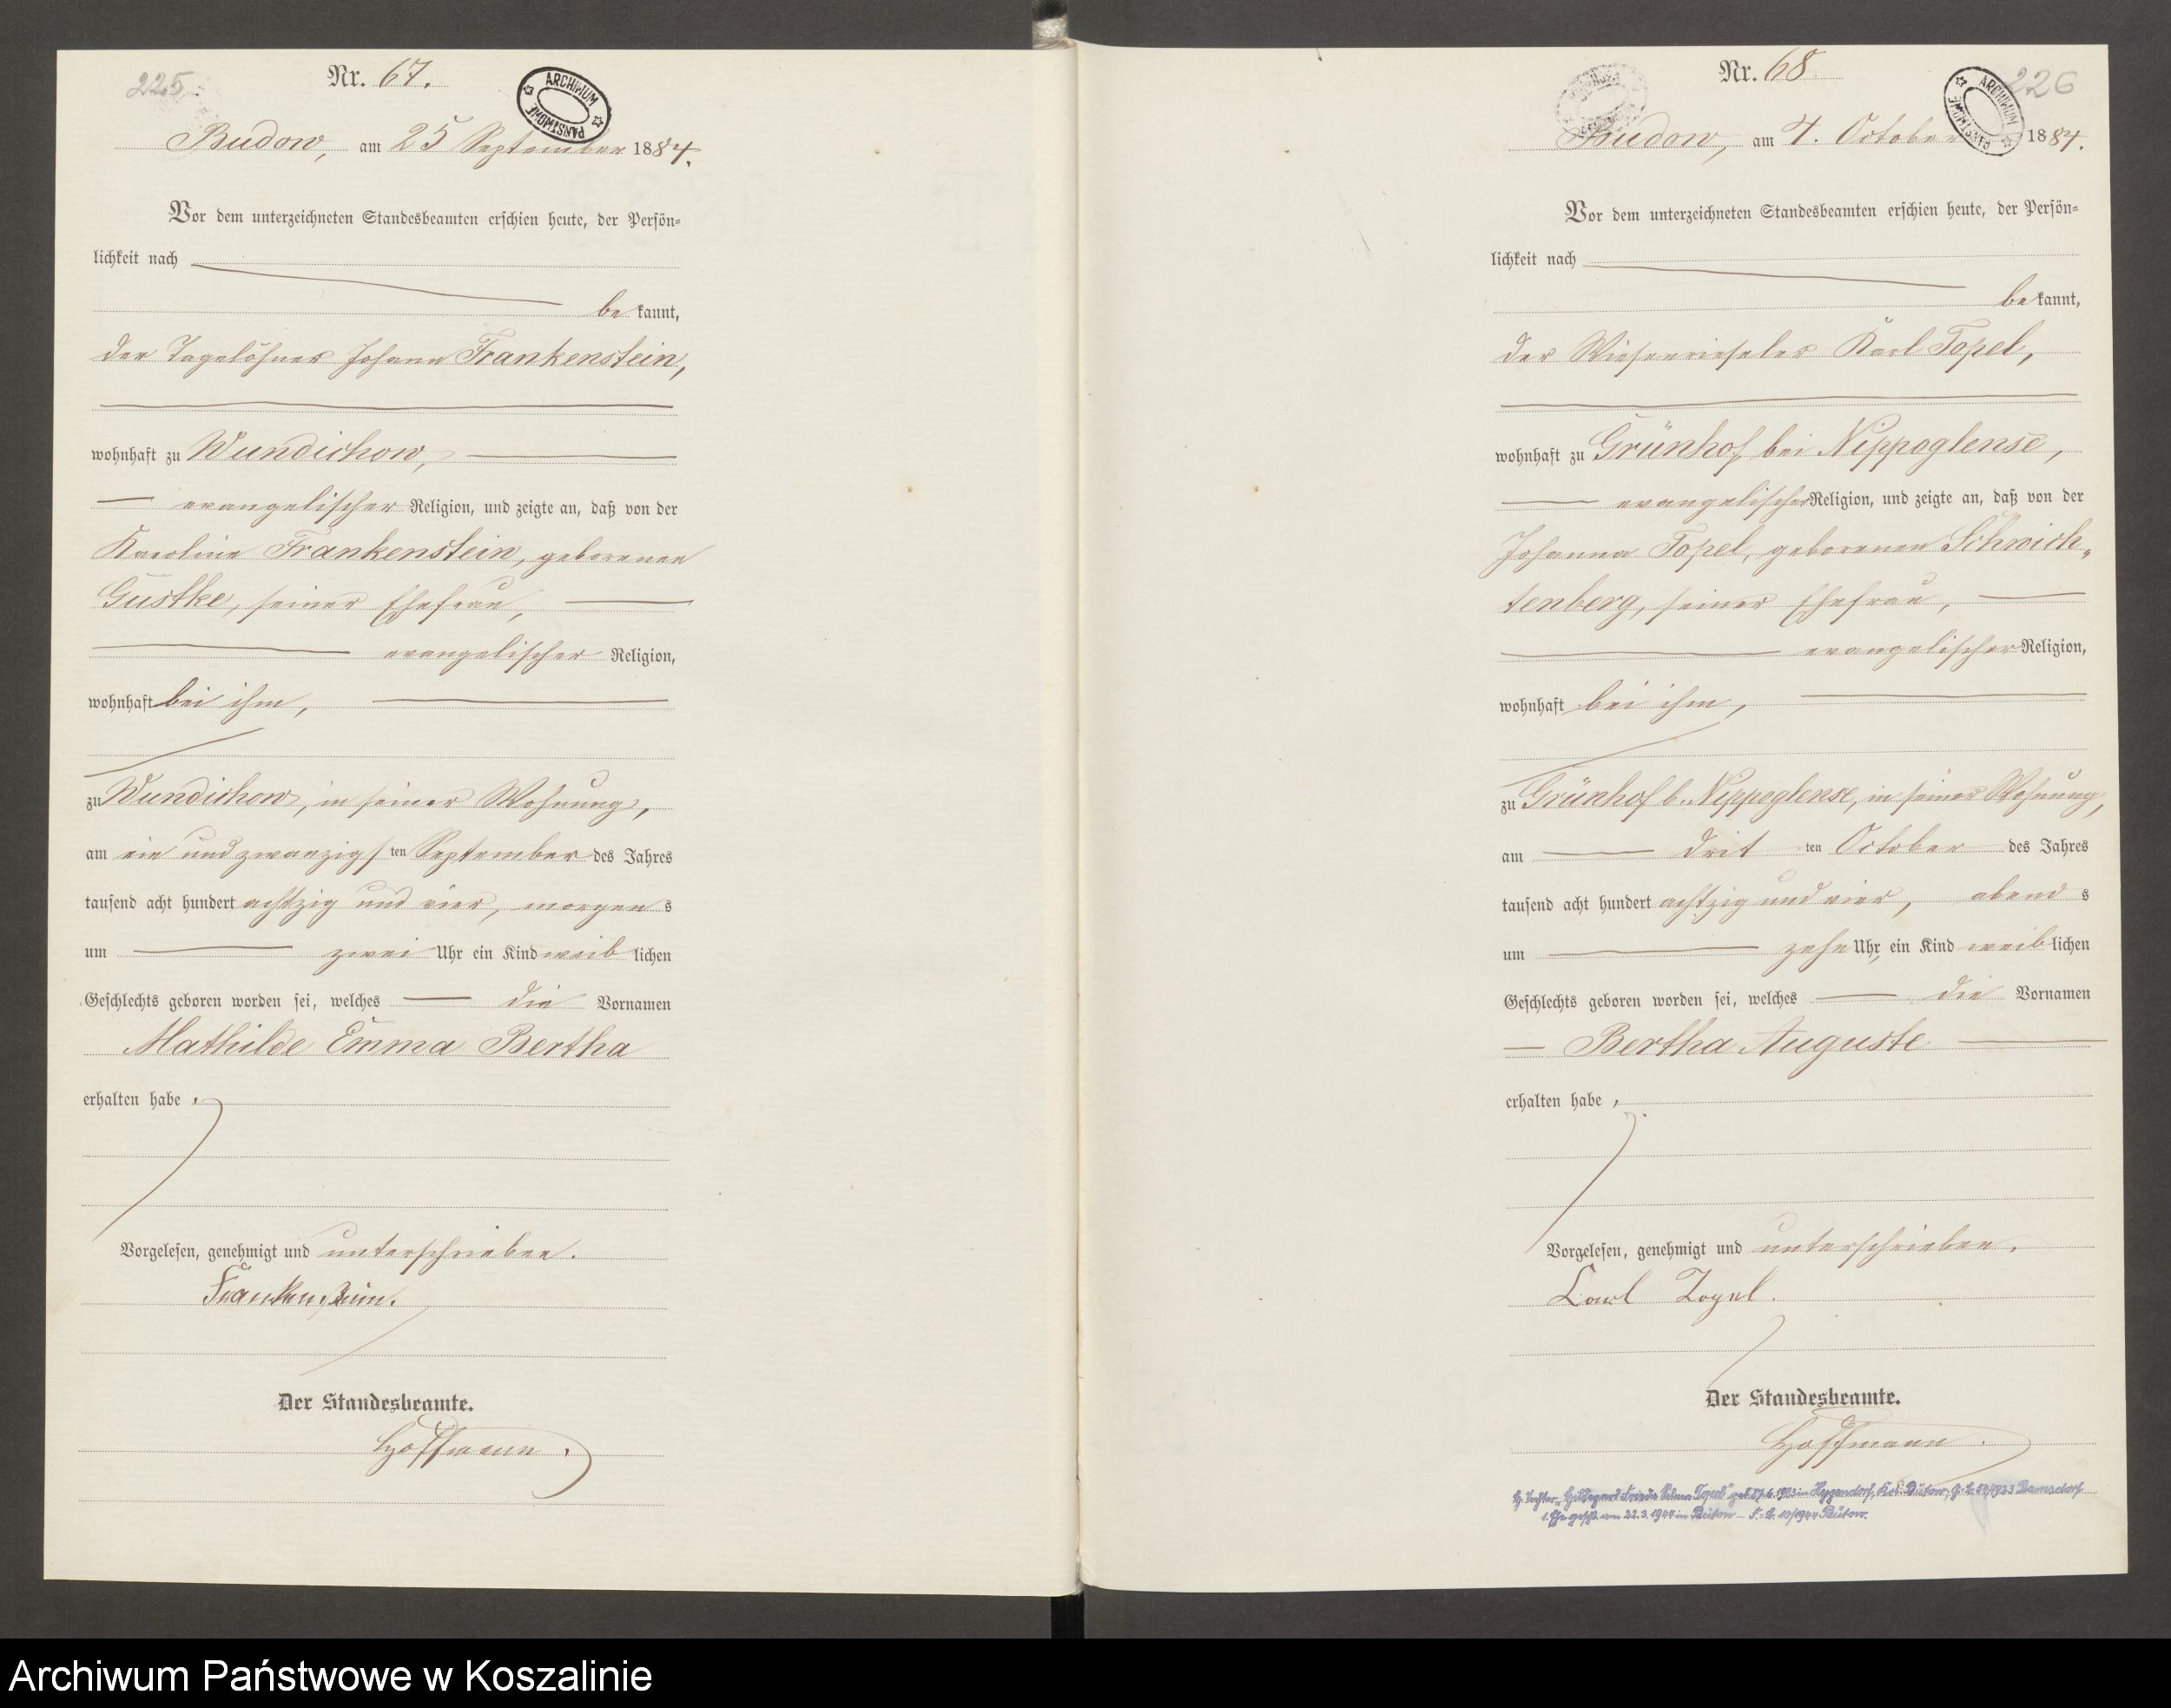 225
Nr. 67.
ARCHIWUM PAŃSTWOWE
Budow, am 25 September 1884.
Vor dem unterzeichneten Standesbeamten erschien heute, der Persön-
lichkeit nach
be kannt,
der Tagelöhner Johann Frankenstein,
wohnhaft zu Wundichow,
evangelischer Religion, und zeigte an, daß von der
Karoline Frankenstein, geborenen
Gustke, seiner Ehefrau,
evangelischer Religion,
wohnhaft bei ihm,
zu Wundichow, in seiner Wohnung,
am ein und zwanzigsten September des Jahres
tausend acht hundert achtzig und vier, morgens
um zwei Uhr ein Kind weiblichen
Geschlechts geboren worden sei, welches die Vornamen
Mathilde Emma Bertha
erhalten habe.
Vorgelesen, genehmigt und unterschrieben.
Frankenstein.
Der Standesbeamte.
Hoffmann.
226
Nr. 68
ARCHIWUM PAŃSTWOWE
Budow, am 4. October 1884.
Vor dem unterzeichneten Standesbeamten erschien heute, der Persön-
lichkeit nach
be kannt,
der Wiesenrieseler Karl Topel,
wohnhaft zu Grünhof bei Nippoglense,
evangelischer Religion, und zeigte an, daß von der
Johanna Topel, geborenen Schwich-
tenberg, seiner Ehefrau,
evangelischer Religion,
wohnhaft bei ihm,
zu Grünhof b. Nippoglense, in seiner Wohnung,
am dritten October des Jahres
tausend acht hundert achtzig und vier, abends
um zehn Uhr, ein Kind weiblichen
Geschlechts geboren worden sei, welches die Vornamen
Bertha Auguste
erhalten habe,
Vorgelesen, genehmigt und unterschrieben.
Carl Topel.
Der Standesbeamte.
Hoffmann.
Tochter Hildegard Frieda Topel geb. 17.6.1923 in Hygendorf, Krs. Bütow, G.-B. Damsdorf
1. Ehe geschl. am 22.3.1944 in Bütow – F.-B. 10/1944 Bütow.
Archiwum Państwowe w Koszalinie